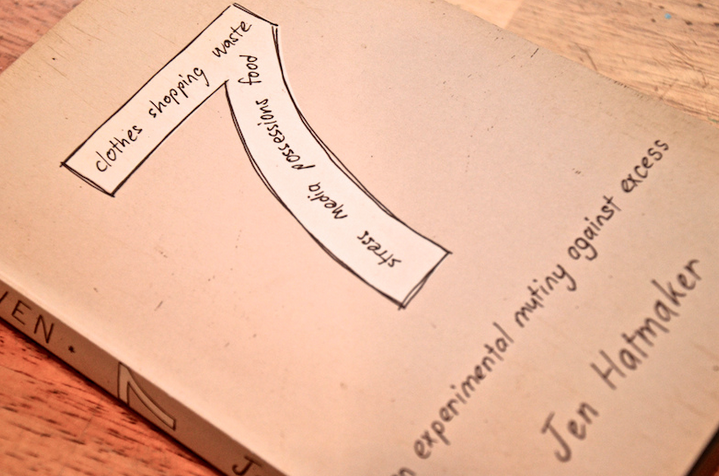 clothes shopping waste
food possessions media stress
n experimental mutiny against excess
Jen Hatmaker
VEN. 7 J